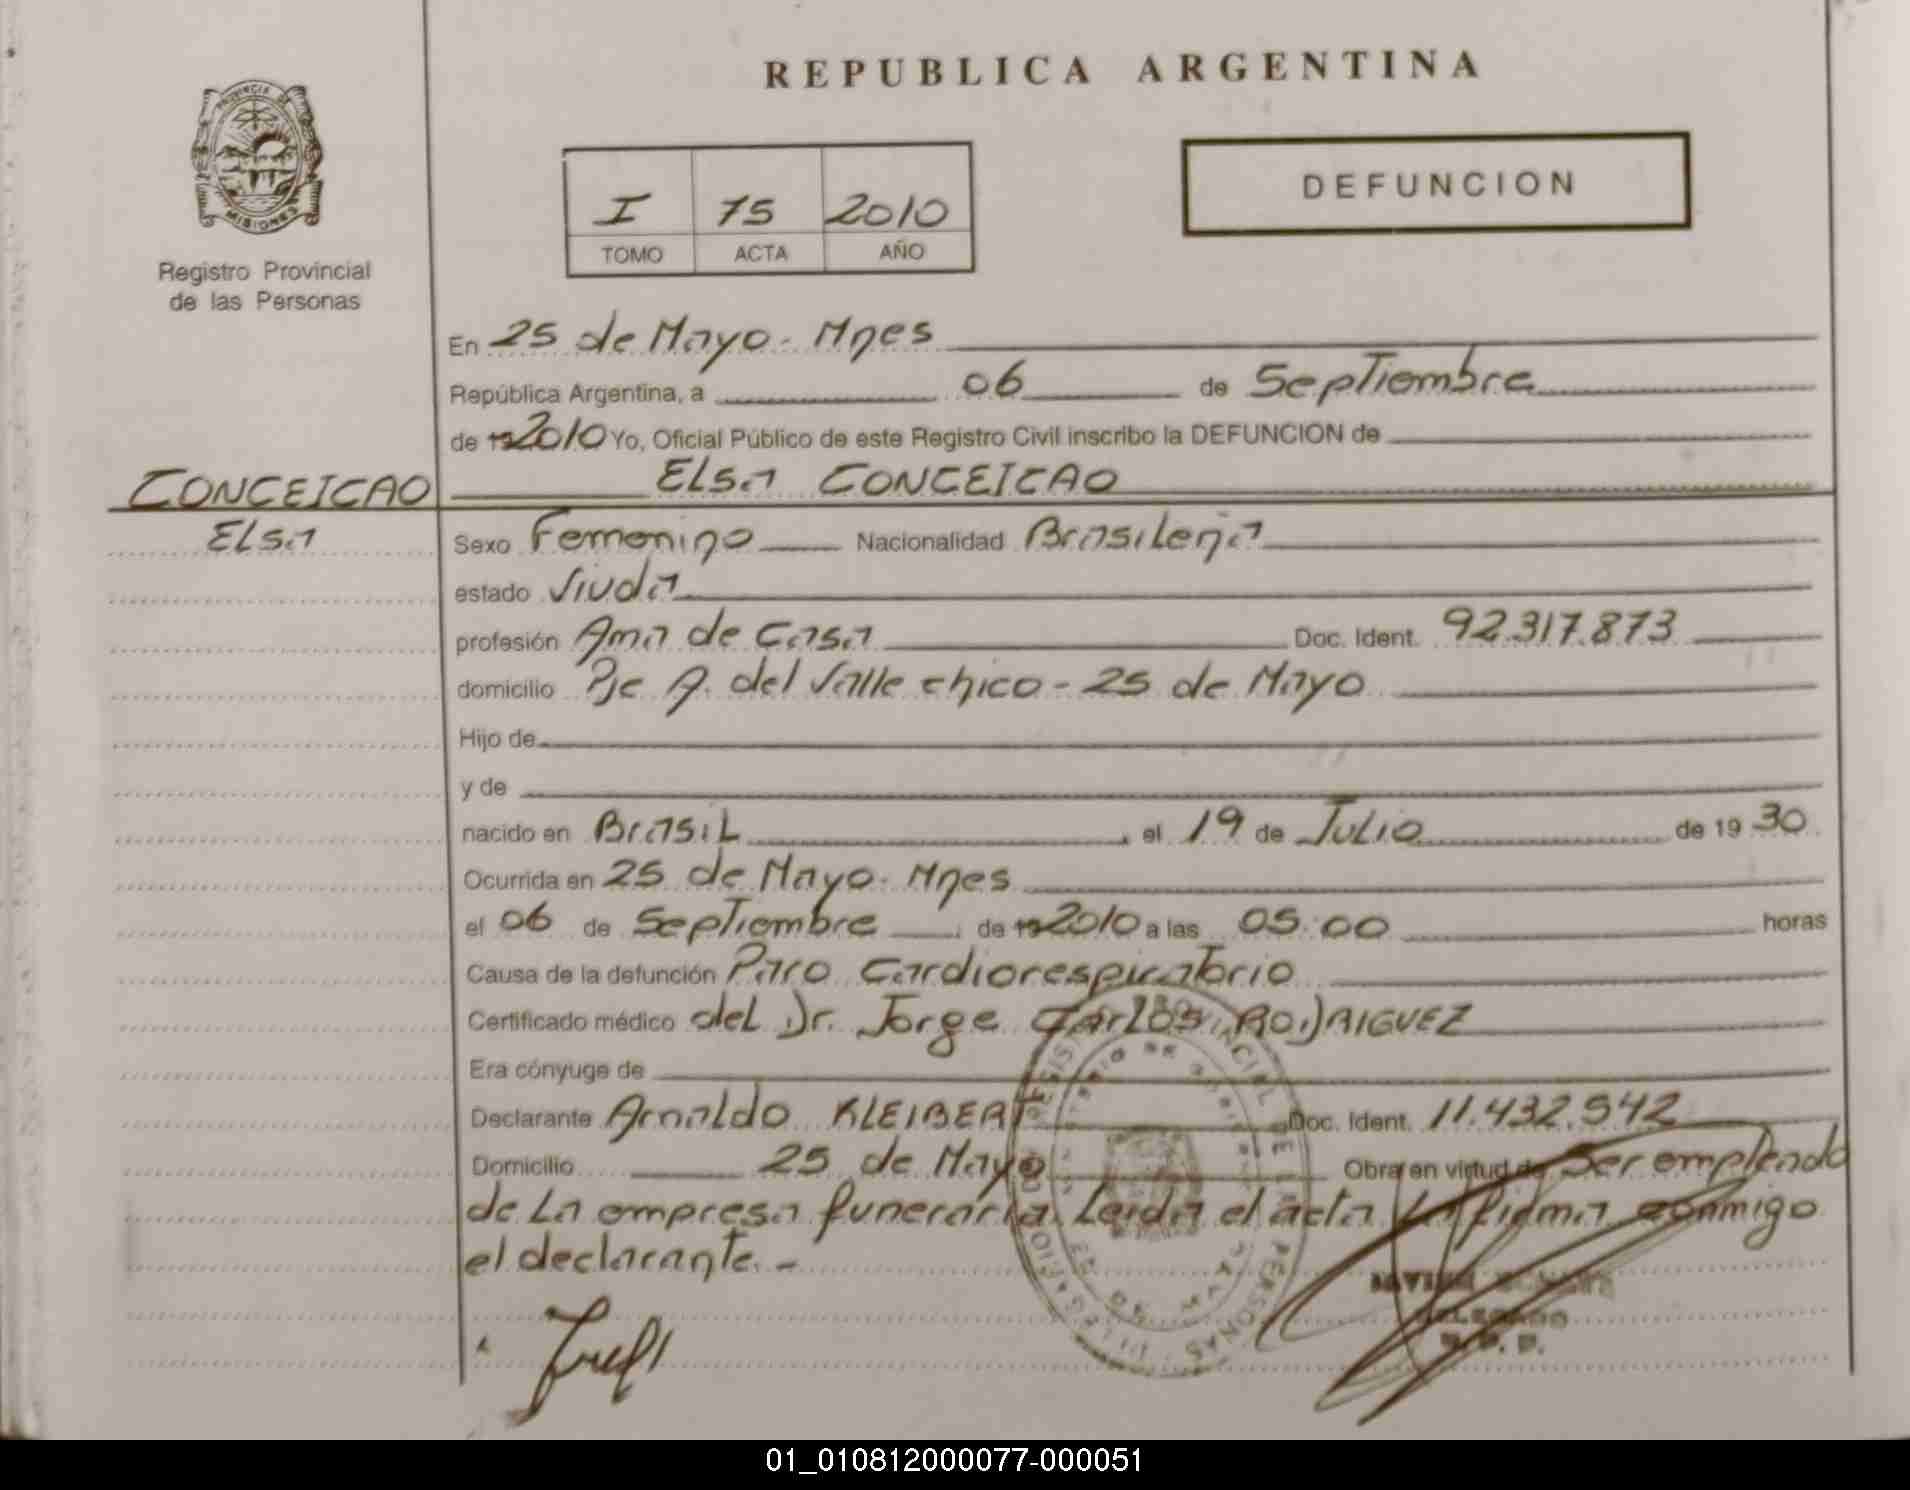 REPUBLICA ARGENTINA
PROVINCIA DE
MISIONES
Registro Provincial
de las Personas
I 75 2010
TOMO ACTA AÑO
DEFUNCION
En 25 de Mayo - Mnes
República Argentina, a 06 de Septiembre
de 19 2010 Yo, Oficial Público de este Registro Civil inscribo la DEFUNCION de
CONCEICAO
Elsa
Elsa CONCEICAO
Sexo Femenino Nacionalidad Brasileña
estado Viuda
profesión Ama de Casa Doc. Ident. 92.317.873
domicilio Pje A. del Valle chico - 25 de Mayo
Hijo de
y de
nacido en Brasil, el 19 de Julio de 19 30
Ocurrida en 25 de Mayo - Mnes
el 06 de Septiembre de 19 2010 a las 05:00 horas
Causa de la defunción Paro Cardiorespiratorio
Certificado médico del Dr. Jorge Carlos RODRIGUEZ
Era cónyuge de
Declarante Arnaldo KLEIBERT Doc. Ident. 11.432.542
Domicilio 25 de Mayo Obra en virtud de Ser empleado
de La empresa funeraria. Leida el acta La firma conmigo
el declarante. -
DELEGADO
01_010812000077-000051